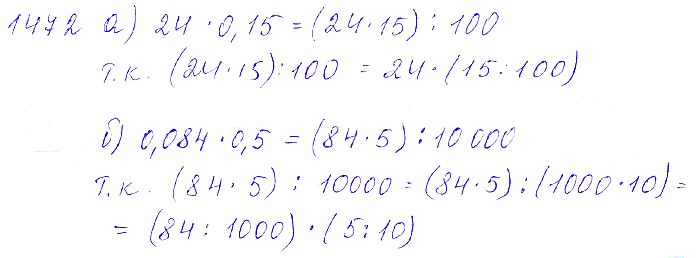 1472 а) 24 · 0,15 = (24 · 15) : 100
т.к. (24 · 15) : 100 = 24 · (15 : 100)
б) 0,084 · 0,5 = (84 · 5) : 10 000
т.к. (84 · 5) : 10000 = (84 · 5) : (1000 · 10) =
= (84 : 1000) · (5 : 10)